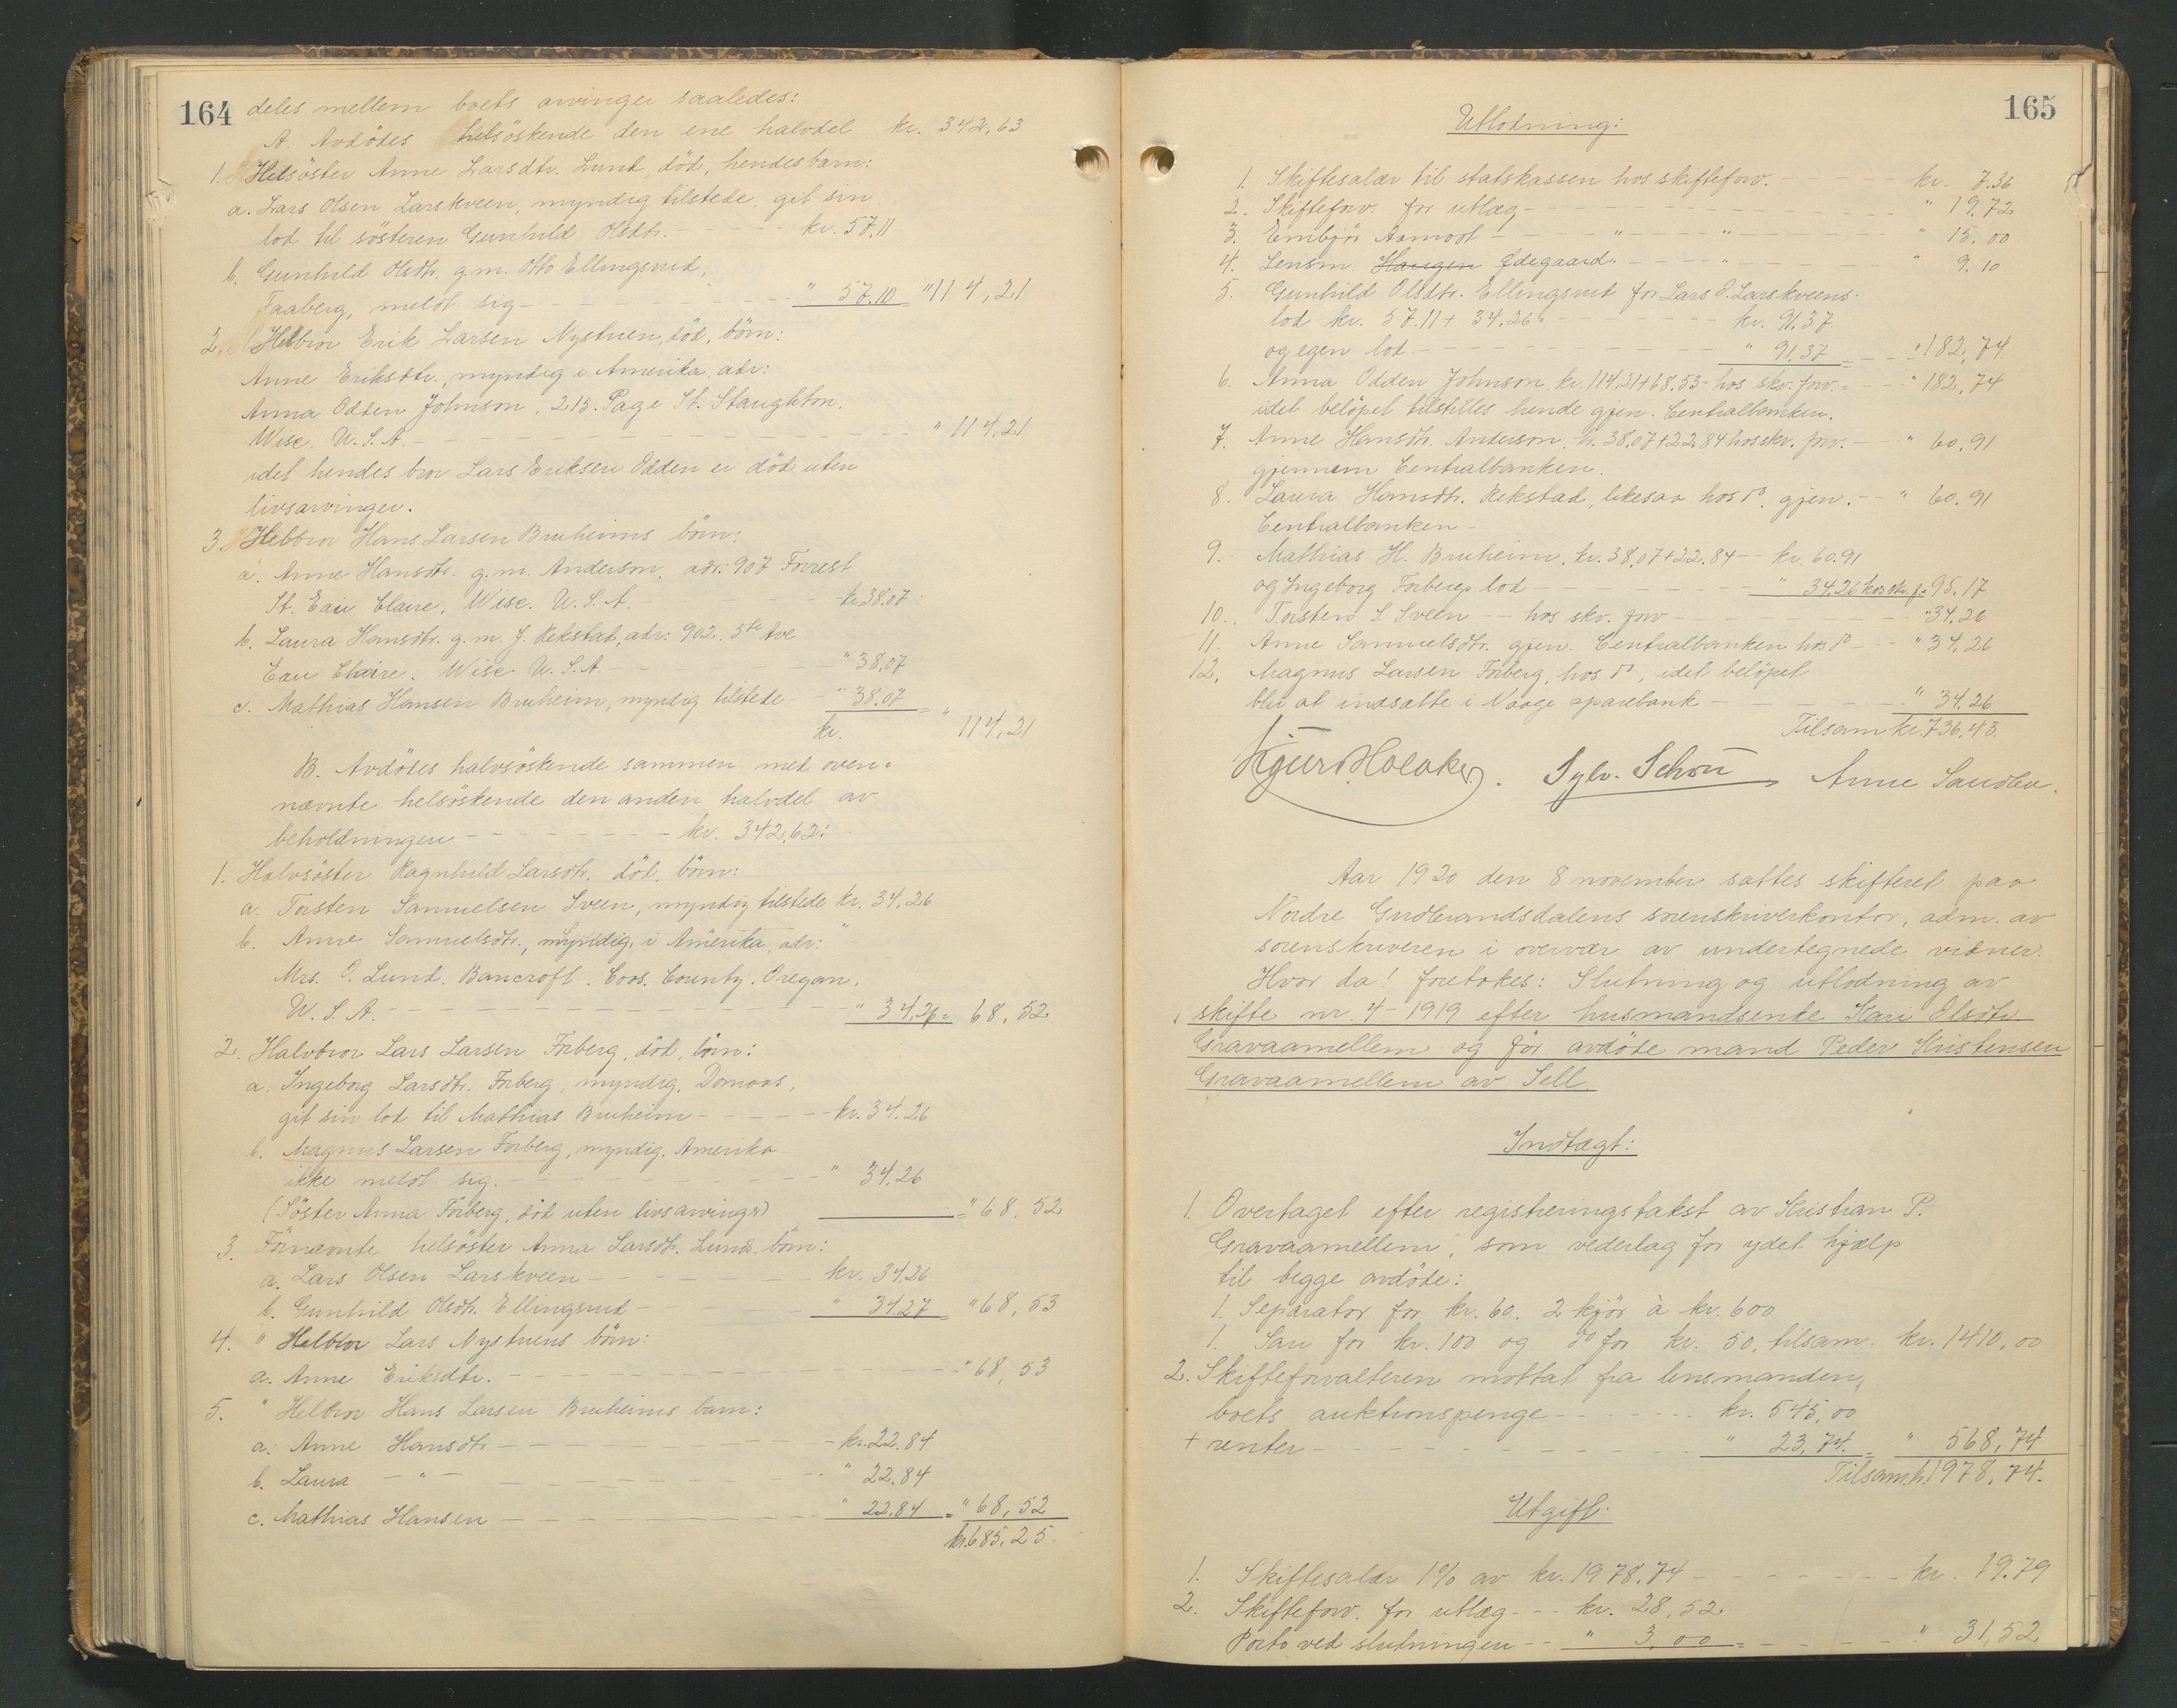 164
deles mellem boets arvinger saaledes:
A. Avdödes helsöskende den ene halvdel kr. 342,63
1. Helsöster Anne Larsdtr. Lund, död, hendes barn:
a. Lars Olsen Larskveen, myndig tilstede, git sin
lod til søsteren Gunhild Olsdtr. - - - kr. 57.11
b. Gunhild Olsdtr. g.m. Otto Ellingsrud,
Faaberg, meldt sig - - - " 57.10 = " 114,21
2. Helbror Erik Larsen Nystuen, död, börn:
Anne Eriksdtr., myndig i Amerika, adr:
Anna Odden Johnson, 215. Page St. Staughton.
Wisc. U.S.A. - - - " 114,21
idet hendes bror Lars Eriksen Odden er död uten
livsarvinger.
3. Helbror Hans Larsen Bruheims börn:
a. Anne Hansdtr. g.m. Anderson, adr: 907 Forrest
St. Eau Claire, Wisc. U.S.A. - - - kr. 38.07
b. Laura Hansdtr. g.m. J. Rekstad, adr: 902. 5te Ave
Eau Claire. Wisc. U.S.A. - - - " 38,07
c. Mathias Hansen Bruheim, myndig tilstede - " 38,07 = "
kr. 114,21
B. Avdödes halvsöskende sammen med oven=
nævnte helsöskende den anden halvdel av
beholdningen - - - kr. 342,62:
1. Halvsöster Ragnhild Larsdtr. död, börn:
a. Torsten Samuelsen Sveen, myndig tilstede kr. 34.26
b. Anne Samuelsdtr., myndig, i Amerika, adr: "
Mrs. O. Lund. Bancroft. Coos. County. Oregan.
U.S.A. - - - " 34,26 = 68,52
2. Halvbror Lars Larsen Forberg, död, börn:
a. Ingeborg Larsdtr. Forberg, myndig, Domaas,
git sin lod til Mathias Bruheim - - - kr. 34.26
b. Magnus Larsen Forberg, myndig. Amerika
ikke meldt sig. - - - " 34.26
(Söster Anna Forberg, död uten livsarvinger) = " 68.52
3. Fornævnte helsöster Anna Larsdtr. Lunds börn:
a. Lars Olsen Larskveen - - - kr. 34,26
b. Gunhild Olsdtr. Ellingsrud - - - " 34.27 = " 68,53
4. " Helbror Lars Nystuens börn:
a. Anne Eriksdtr. - - - " 68,53
5. " Helbror Hans Larsen Bruheims barn:
a. Anne Hansdtr - - - kr. 22.84
b. Laura - " - - - - " 22.84
c. Mathias Hansen - - - " 22.84 = " 68,52
kr. 685,25.
165
Utlodning:
1. Skiftesalær til statskassen hos skifteforv. - - - kr. 7.36
2. Skifteforv. for utlæg - - - " 19.72
3. Embjör Aamodt - - - " - - - " - - - " 15.00
4. Lensm. Haugen Ødegaard " - - - " - - - " 9.10
5. Gunhild Olsdtr. Ellingsrud for Lars O. Larskveens
lod kr. 57.11 + 34,26 - - - kr. 91,37
og egen lod - - - " 91,37 = - - " 182,74
6. Anna Odden Johnson, kr. 114,21+68,53 = hos skr. forv. = - - " 182,74
idet belöpet tilstilles hende gjen. Centralbanken.
7. Anne Hansdtr. Anderson, kr. 38,07+22,84 hos skr. forv. - - " 60,91
gjennem Centralbanken.
8. Laura Hansdtr. Rekstad, likesaa hos do. gjen. - - " 60.91
Centralbanken -
9. Mathias H. Bruheim, kr. 38,07+22.84 - - kr. 60.91
og Ingeborg Forbergs lod - - - " 34.26 hos sk. f = 95.17
10. Torsten S. Sveen - - hos skv. forv - - - " 34.26
11. Anne Samuelsdtr. gjen. Centralbanken hos do - - " 34,26
12. Magnus Larsen Forberg, hos do, idet belöpet
blir at indsætte i Vaage sparebank - - - " 34.26
Tilsam kr. 736,43.
Sylv. Schou Anne Sandbu.
Aar 1920 den 8 november sattes skifteret paa
Nordre Gudbrandsdalens sorenskriverkontor, adm. av
sorenskriveren i overvær av undertegnede vidner.
Hvor da! foretokes: Slutning og utlodning av
skifte nr. 4 - 1919 efter husmandsenke Kari Olsdtr
Gravaamellem og för avdöde mand Peder Kristensen
Gravaamellem av Sell.
Indtægt:
1. Overtaget efter registreringstakst av Kristian P.
Gravaamellem, som vederlag for ydet hjælp
til begge avdöde:
1. Separator for kr. 60. 2 kjör à kr. 600
1. Sau for kr. 100 og do for kr. 50, tilsam. kr. 1410,00
2. Skifteforvalteren mottat fra lensmanden,
boets auktionspenge - - - kr. 545,00
+ renter - - - " 23,74. = " 568,74
Tilsam. kr. 1978,74.
Utgift:
1. Skiftesalær 1% av kr. 1978.74 - - - kr. 19.79
2. Skifteforv. for utlæg - - - kr. 28,52
Porto ved slutningen - - " 3,00 = - - - " 31,52